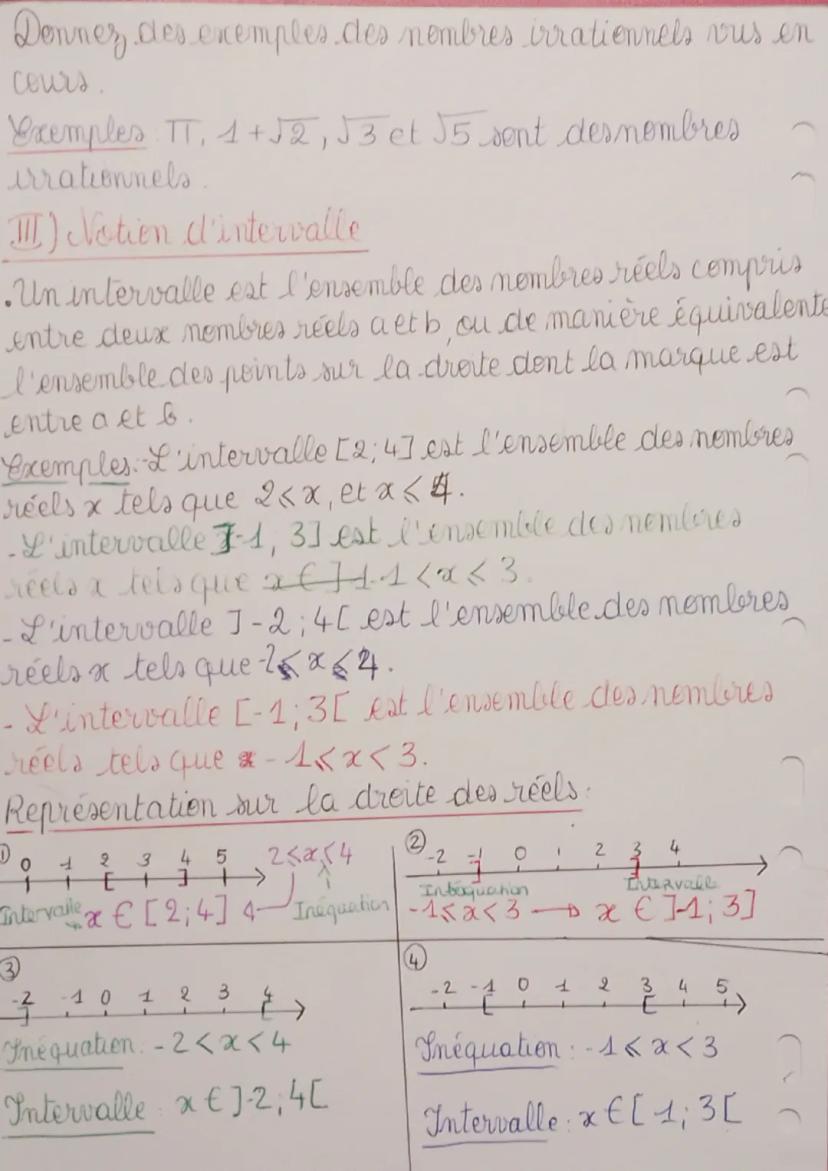 Donnez des exemples des nombres irrationnels vus en
cours.
Exemples π, 1+√2, √3 et √5 sont des nombres
irrationnels.
III) Notion d'intervalle
. Un intervalle est l'ensemble des nombres réels compris
entre deux nombres réels a et b, ou de manière équivalente
l'ensemble des points sur la droite dont la marque est
entre a et b.
Exemples:-L'intervalle [2;4] est l'ensemble des nombres
réels x tels que 2⩽x, et x⩽4.
-L'intervalle ]-1, 3] est l'ensemble des nombres
réels x tels que x∈]-1-1<x⩽3.
-L'intervalle ]-2;4[ est l'ensemble des nombres
réels x tels que -2⩽x⩽4.
-L'intervalle [-1;3[ est l'ensemble des nombres
réels tels que -1⩽x<3.
Représentation sur la droite des réels:
① 0 1 2 3 4 5 2⩽x⩽4
Intervalle x∈[2;4] Inéquation
② -2 -1 0 1 2 3 4
Intervalle
-1⩽x<3 → x∈]-1;3]
③
-2 -1 0 1 2 3 4
Inéquation: -2<x<4
Intervalle: x∈]-2;4[
④
-2 -1 0 1 2 3 4 5
Inéquation: -1⩽x<3
Intervalle: x∈[-1;3[